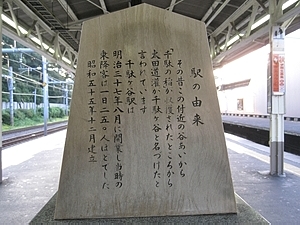 駅の由来
その昔この付近の谷あいから
千駄の稲が収穫されたところから
太田道灌が千駄ヶ谷と名づけたと
言われています
千駄ヶ谷駅は
明治三十七年八月に開業し当時の
乗降客は一日二五〇人ほどでした
昭和五十五年十二月建立